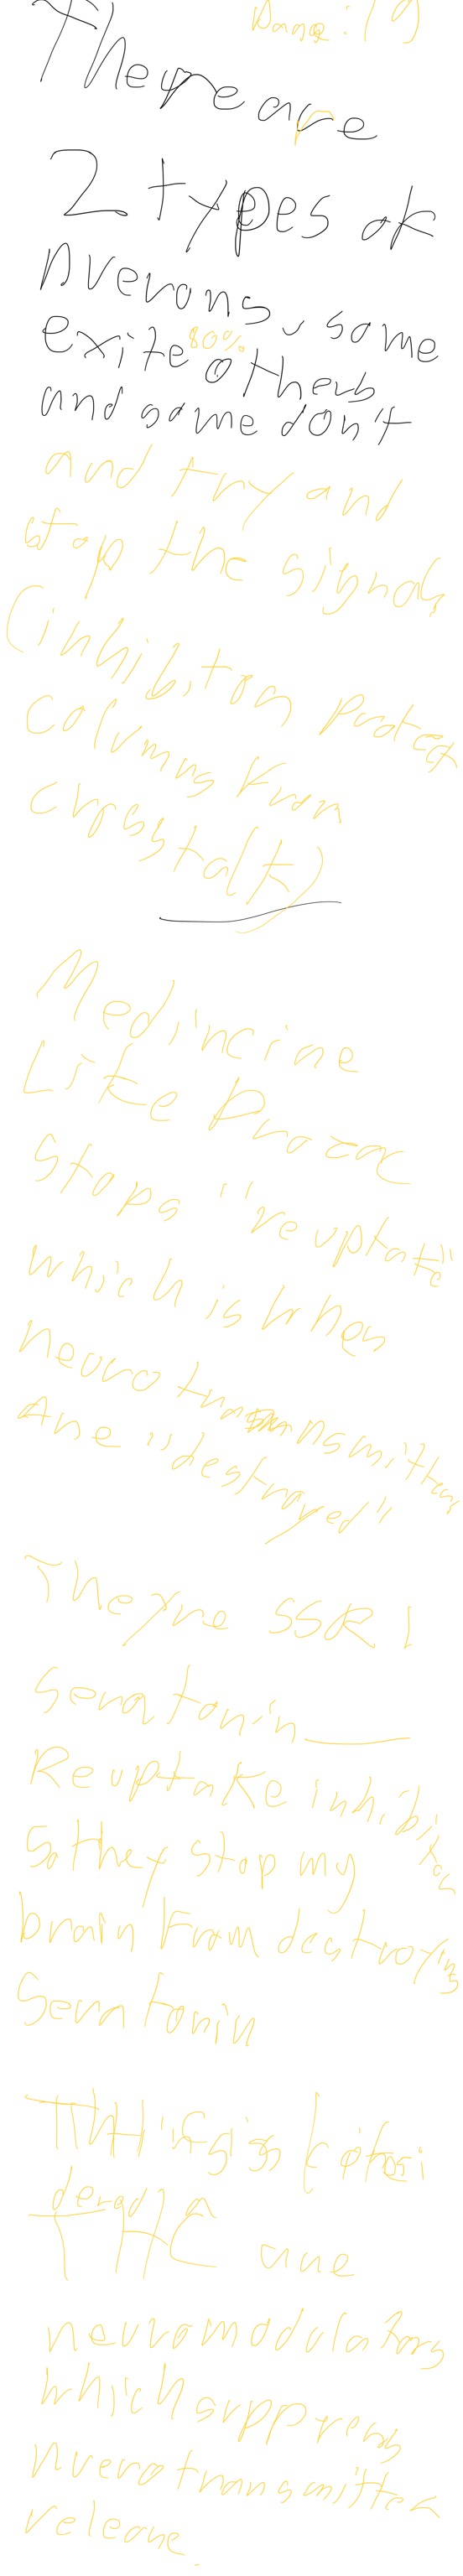 : 19
There are
2 types of
nuerons, some
exite 80% others
and some don't
and try and
stop the signals
(inhibiton protect
columns from
crosstalk)
Medincine
Like Prozac
stops "reuptate"
which is when
neurotransmitters
Are "destroyed"
They're SSRI
Seratonin
Reuptake inhibitor
So they stop my
brain from destroying
Seratonin
THC are
neuromodulators
which suppress
nuerotransmitter
release.